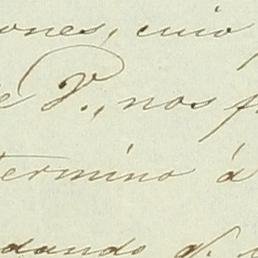 ones, cuio
e V., nos
termino á
dando